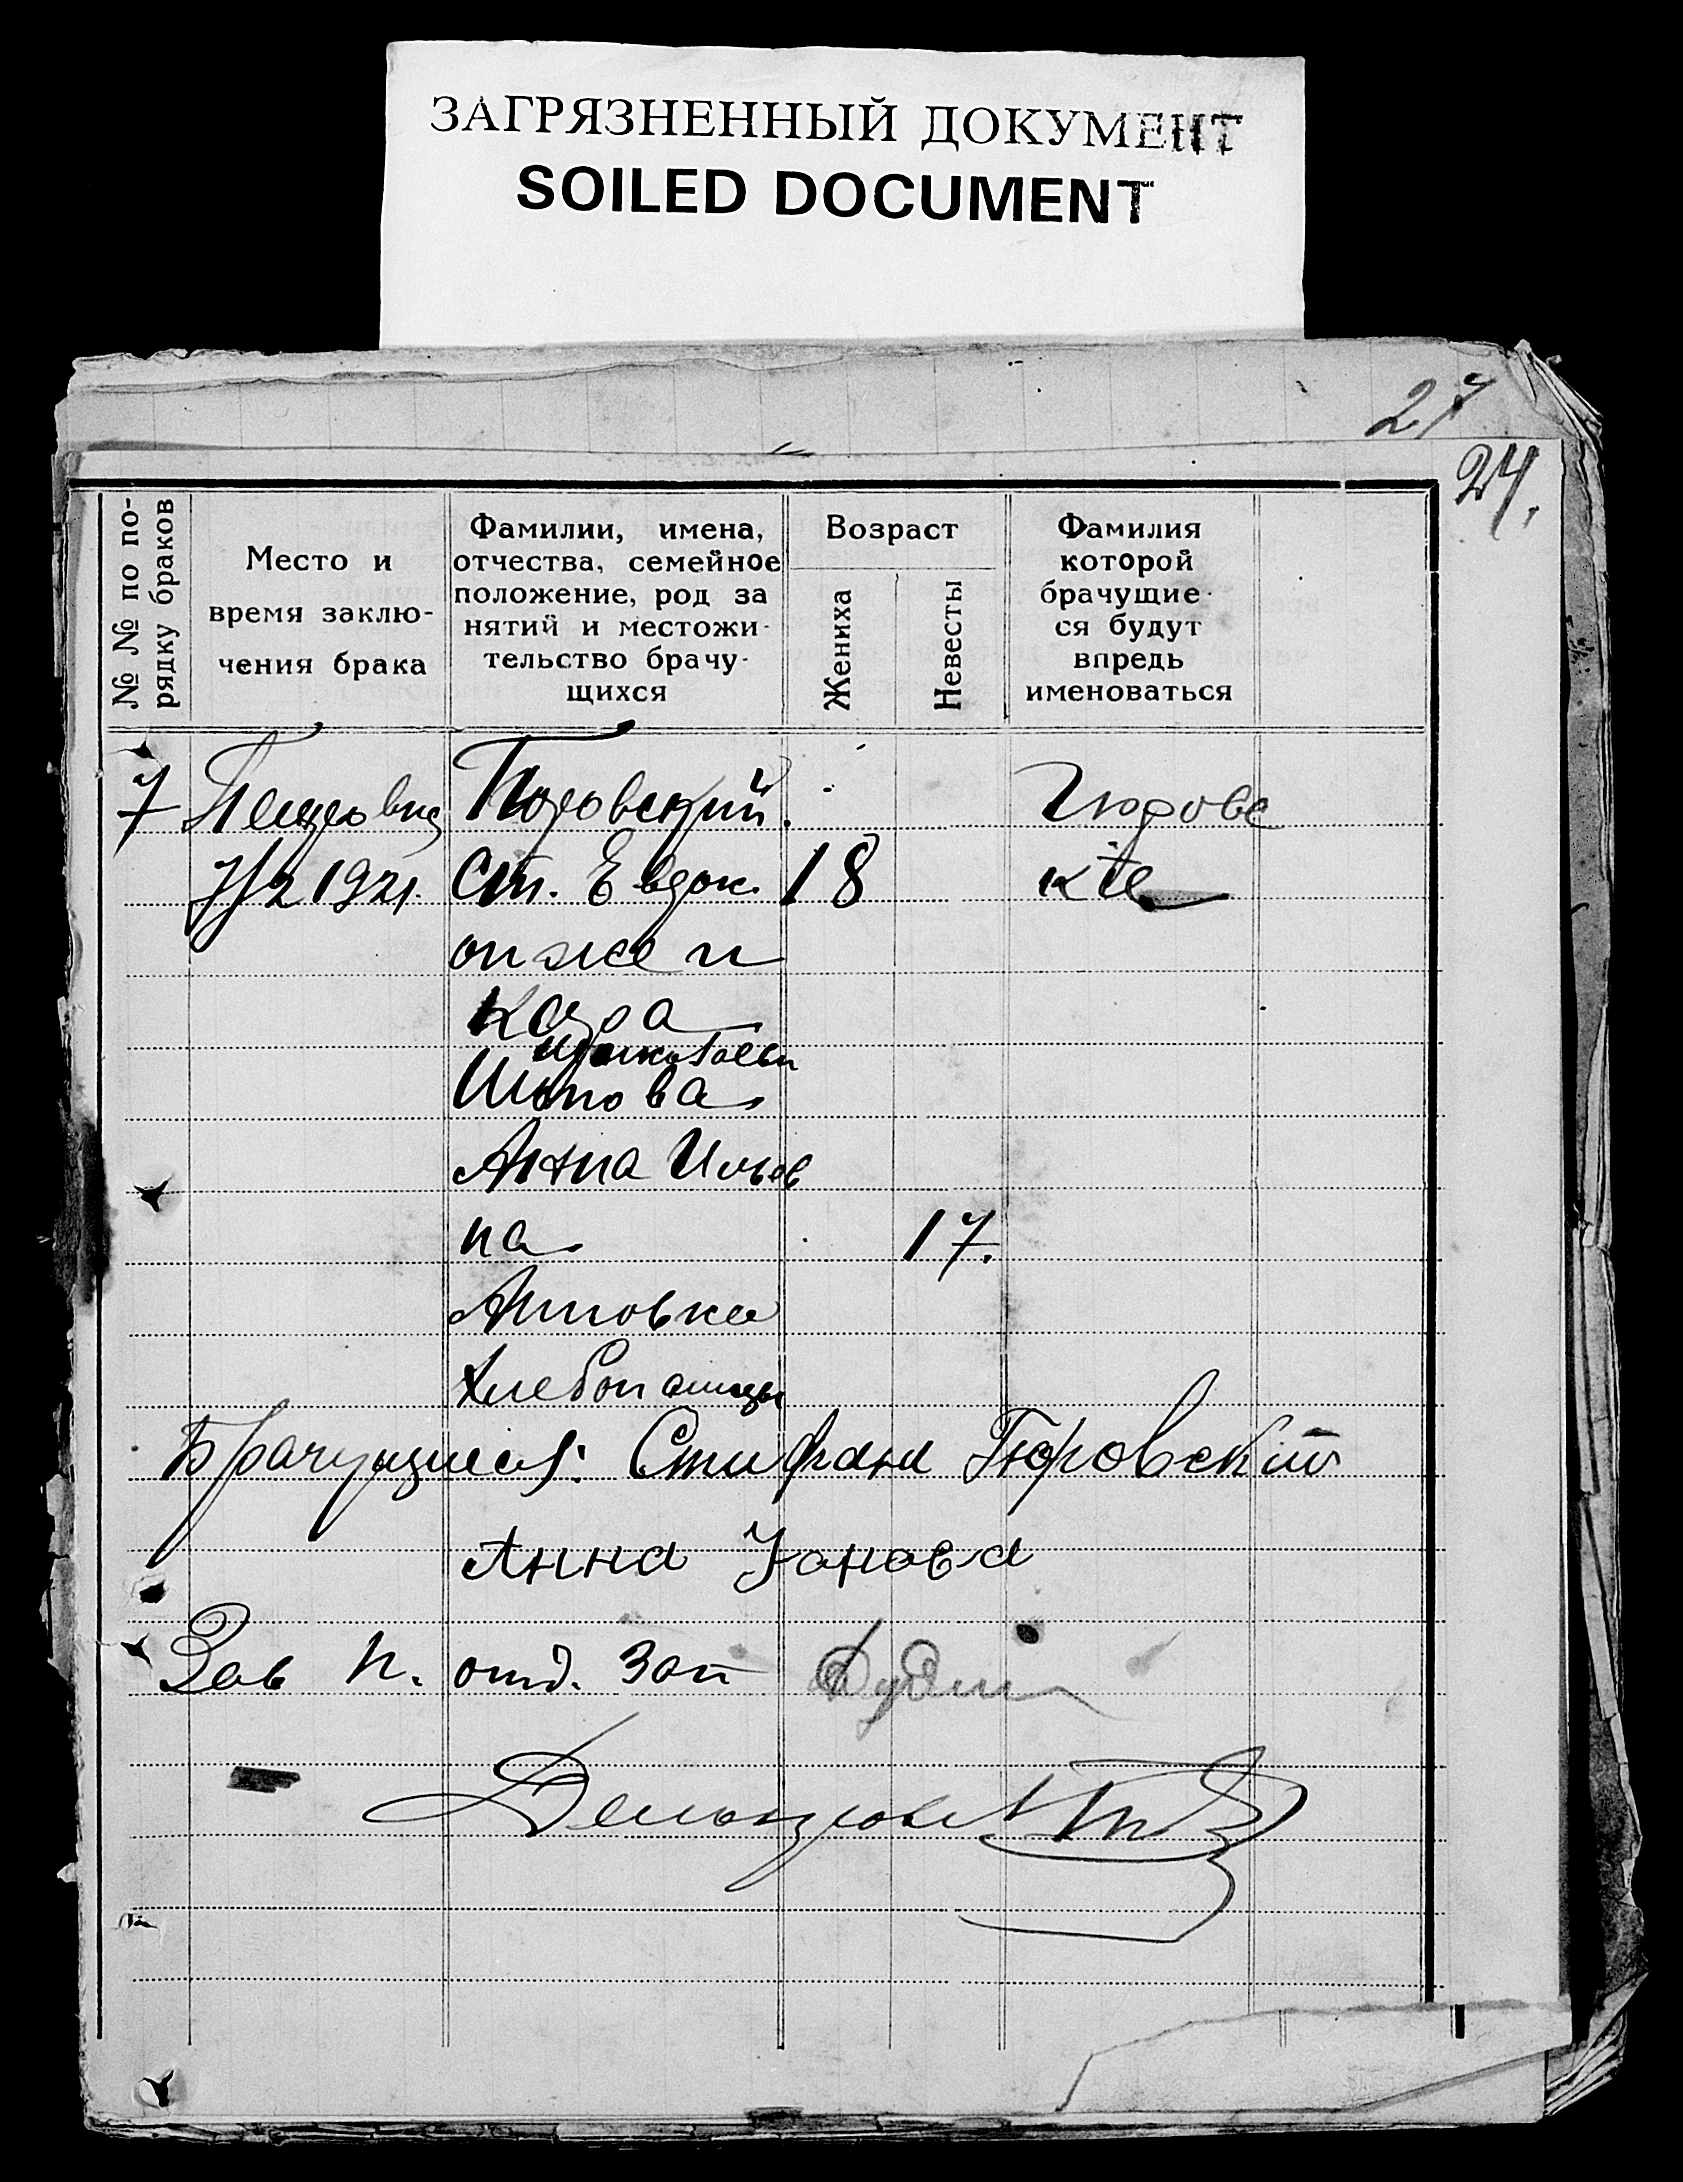 ЗАГРЯЗНЕННЫЙ ДОКУМЕНТ
SOILED DOCUMENT
27
24.
№ № по по-
рядку браков
Место и
время заклю-
чения брака
Фамилии, имена,
отчества, семейное
положение, род за
нятий и местожи-
тельство брачу-
щихся
Возраст
Жениха
Невесты
Фамилия
которой
брачущие-
ся будут
впредь
именоваться
7
Гюровский.
Гюровс
7/2 1921.
Ст. Евдок.
18
кіе
он же и
Анна Ильов
на
17.
Хлебопашцы
Брачущиеся: Стифана Гюровский
Анна
Зав п. отд. Зап